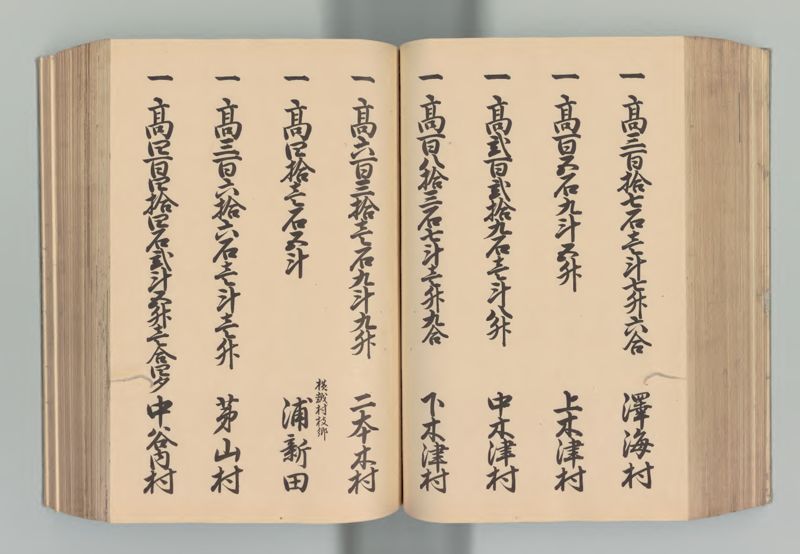 一 高三百拾七石壱斗七升六合 澤海村
一 高百五石九斗五升 上木津村
一 高弐百弐拾九石壱斗八升 中木津村
一 高百八拾三石七斗壱升九合 下木津村
一 高六百三拾壱石九斗九升 二本木村
一 高四拾壱石五斗 横越村枝郷 浦新田
一 高三百六拾六石壱斗壱升 茅山村
一 高四百四拾四石弐斗五升壱合四夕 中谷内村